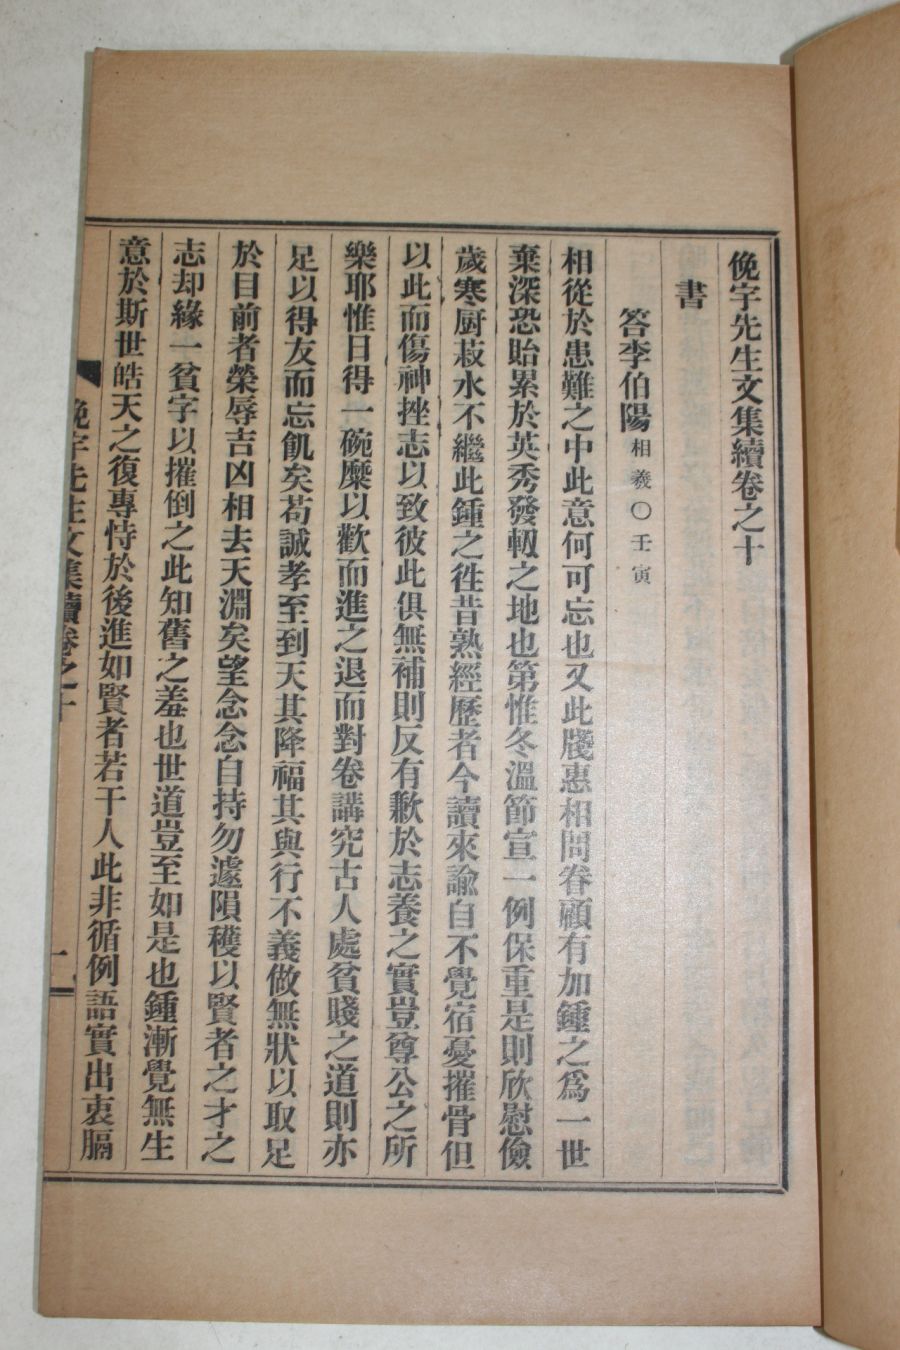 俛宇先生文集續卷之十
書
答李伯陽 相羲○壬寅
相從於患難之中此意何可忘也又此牋惠相問眷顧有加鍾之爲一世
棄深恐貽累於英秀發軔之地也第惟冬溫節宣一例保重是則欣慰儉
歲寒厨菽水不繼此鍾之徃昔熟經歷者今讀來諭自不覺宿憂摧骨但
以此而傷神挫志以致彼此俱無補則反有歉於志養之實豈尊公之所
樂耶惟日得一碗糜以歡而進之退而對卷講究古人處貧賤之道則亦
足以得友而忘飢矣苟誠孝至到天其降福其與行不義做無狀以取足
於目前者榮辱吉凶相去天淵矣望念念自持勿遽隕穫以賢者之才之
志却緣一貧字以摧倒之此知舊之羞也世道豈至如是也鍾漸覺無生
意於斯世皓天之復專恃於後進如賢者若干人此非循例語實出衷膈
俛宇先生文集續卷之十
一